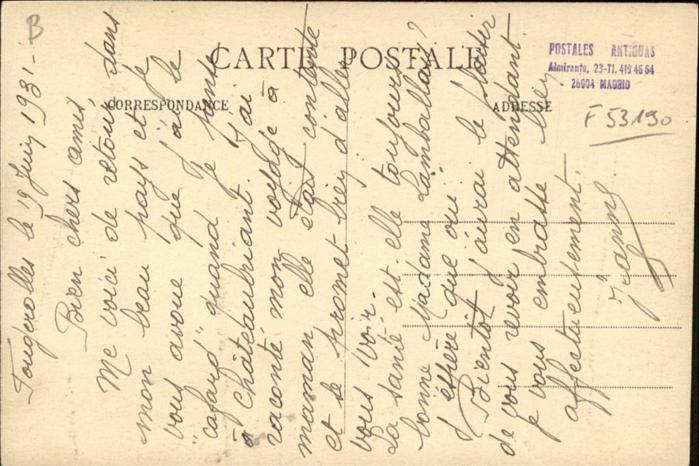 B
CARTE POSTALE
CORRESPONDANCE
ADRESSE
POSTALES ANTIGUAS
Almirante, 23-Tl. 419 46 64
28004 MADRID
F 53190
Fougerolles le 19 Juin 1931 -
Bien chers amis,
Me voici de retour dans
mon beau pays et je
vous avoue que j'ai le
"cafard" quand je pense
à Châteaubriant. J'ai
raconté mon voyage à
maman elle était contente
et se promet bien d'aller
vous voir.
La santé est-elle toujours
bonne Madame Lamballais?
J'espère que oui.
Bientôt j'aurai le plaisir
de vous revoir en attendant
je vous embrasse bien
affectueusement.
Jeanne